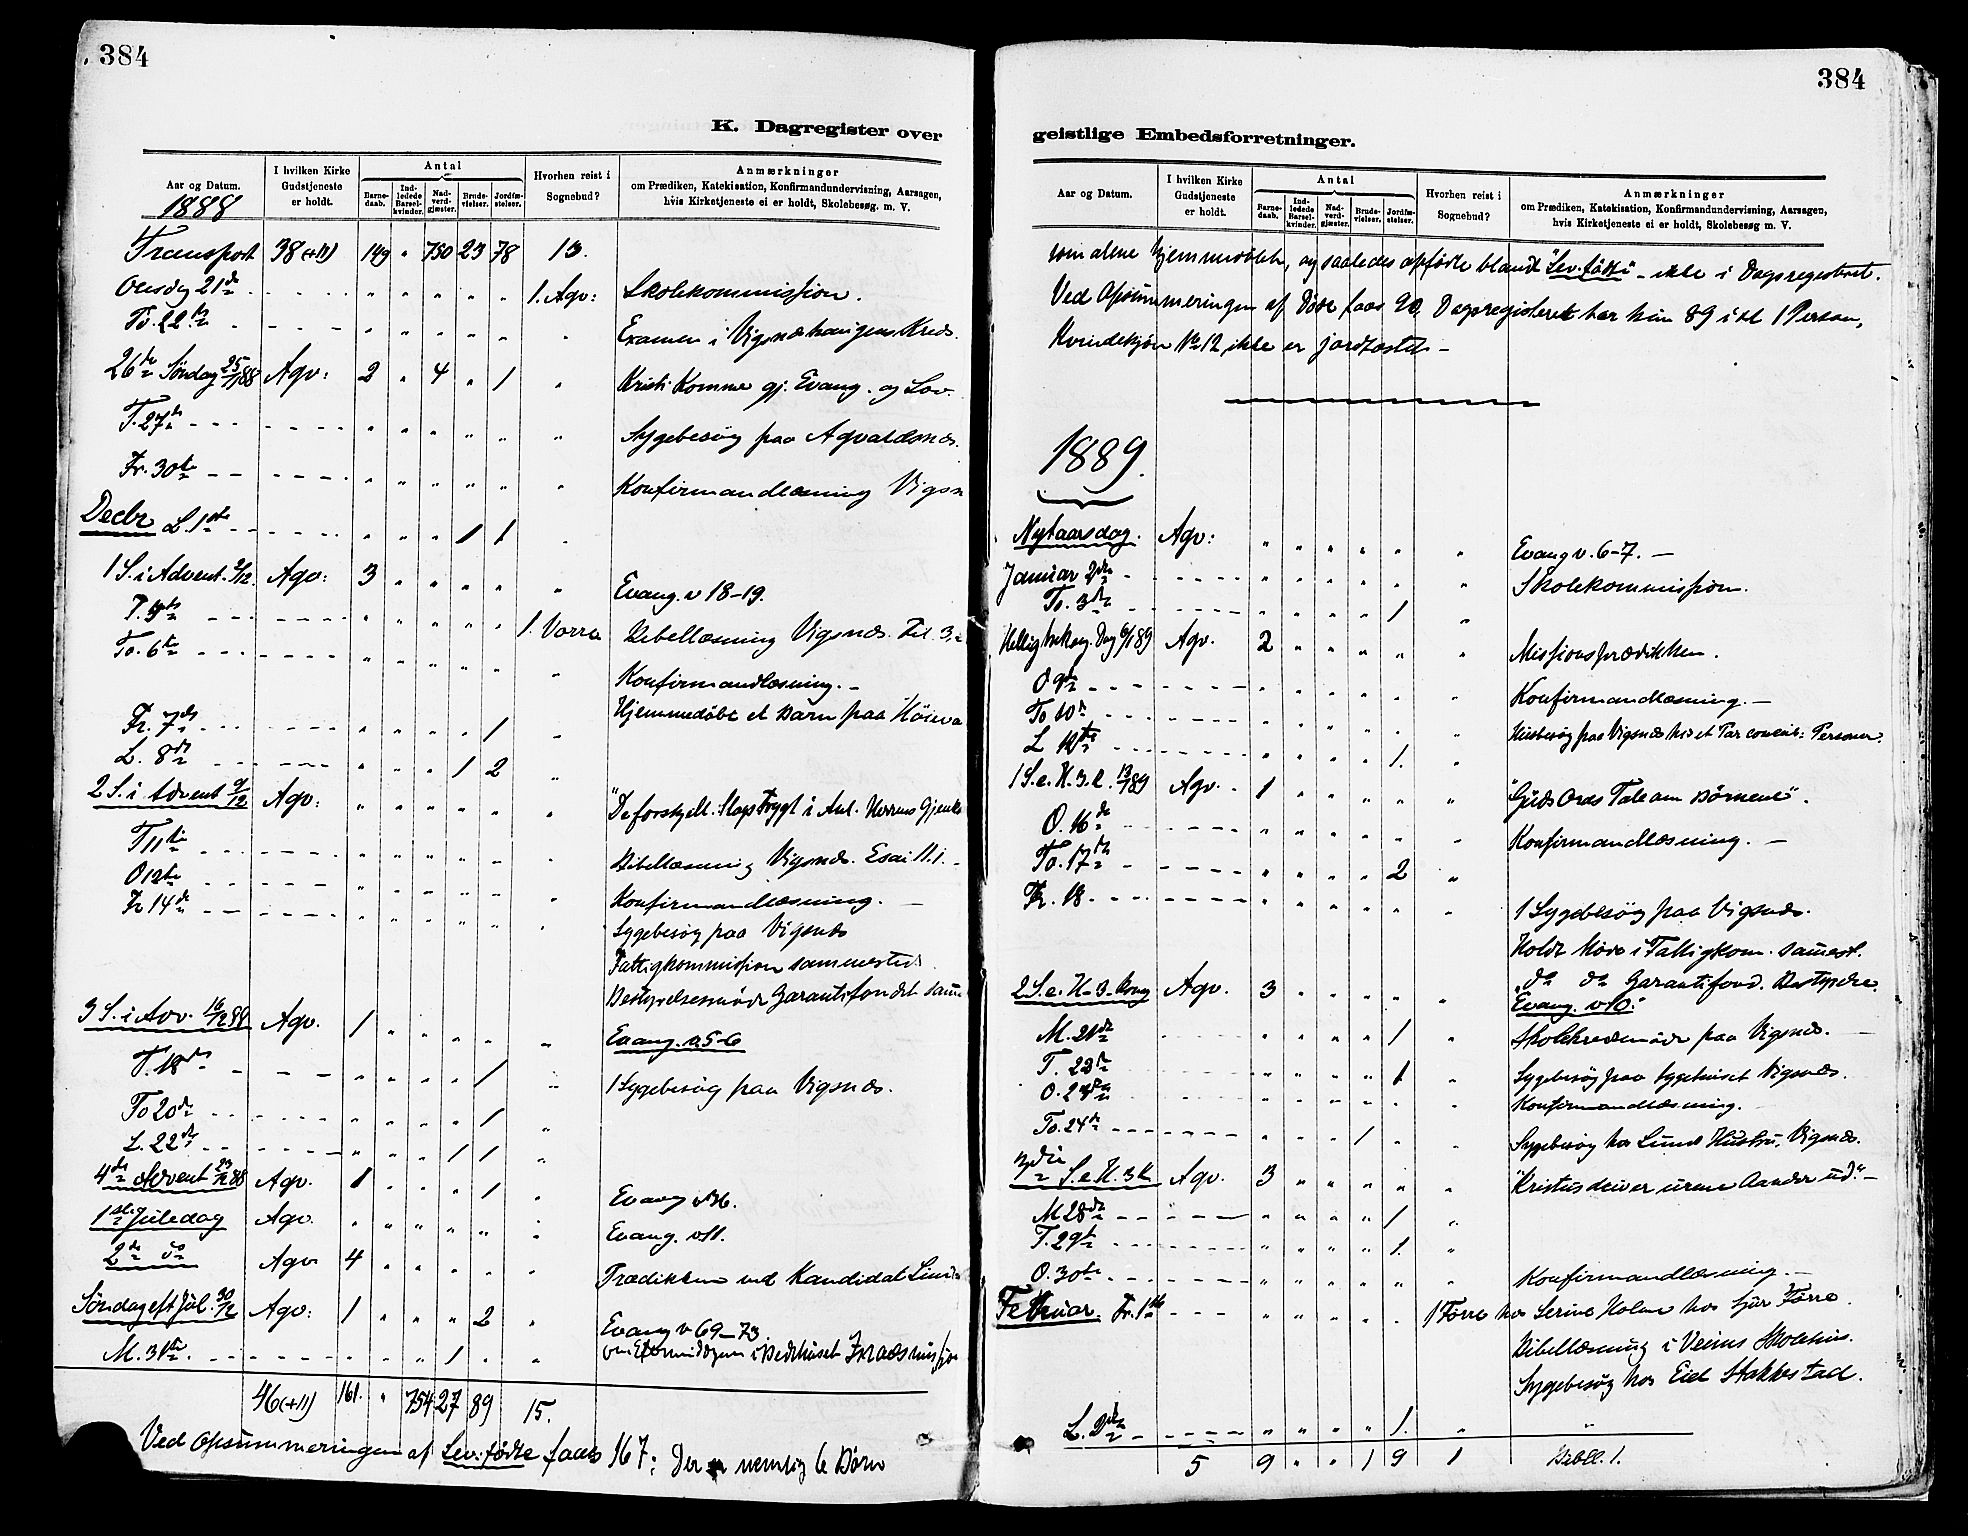 384
K. Dagregister over
Aar og Datum. I hvilken Kirke Gudstjeneste er holdt. Antal Barnedaab. Indledede Barselkvinder. Nadverdgjæster. Brudevielser. Jordfæstelser. Hvorhen reist i Sognebud? Anmærkninger om Prædiken, Katekisation, Konfirmandundervisning, Aarsagen, hvis Kirketjeneste ei er holdt, Skolebesøg m. V.
1888
Transport 38(+11) 149 " 750 23 78 13.
Onsdag 21de " " " " " 1. Agv: Skolekommission.
To. 22de " " " " " " Examen i Vigsnæshaugens Kreds.
26de Søndag 25/11 88 Agv: 2 " 4 " 1 " Kristi Komme gj. Evang. og Lov.
T. 27de " " " " " " Sygebesøg paa Agvaldsnæs.
Fr. 30te " " " " " " Konfirmandlæsning Vigsn
Decbr L. 1ste " " " 1 1 "
1 S. i Advent 2/12 Agv: 3 " " " " " Evang. v 18-19.
T. 4de " " " " " 1. Vorre Bibellæsning Vigsnæs.
To. 6te " " " " " " Konfirmandlæsning. -
Hjemmedøbt et Barn paa
Fr. 7de " " " " 1 "
L. 8de " " " 1 2 "
2 S. i Advent 9/12 Agv: " " " " " "
T 11te " " " " " " Bibellæsning Vigsnæs. Esai 11.1. -
O 12te " " " " " " Konfirmandlæsning. -
Fr 14de " " " " " " Sygebesøg paa Vigsnæs
Fattigkommission sammesteds
Bestyrelsesmøde Garantifondet
3 S. i Adv. 16/12 88 Agv. 1 " " " " " Evang. v. 5-6
T. 18de " " " " 1 " 1 Sygebesøg paa Vigsnæs.
To 20de " " " " 1 "
L. 22de " " " 1 1 "
4de Advent 23/12 88 Agv. 1 " " " 1 " Evang
1ste Juledag Agv. " " " " " " Evang. v 11.
2de do Agv 4 " " " " " Prædikken ved Kandidat
Søndag eft Jul. 30/12 Agv: 1 " " " 2 " Evang v 69-73
M. 31te. " " 1 " " om Eftermiddagen i Bedehuset
46(+11) 161. " 754 27 89 15.
Ved Opsummeringen af Lev. fødte faaes 167; Der er nemlig 6 Børn
384
geistlige Embedsforretninger.
Aar og Datum. I hvilken Kirke Gudstjeneste er holdt. Antal Barnedaab. Indledede Barselkvinder. Nadverdgjæster. Brudevielser. Jordfæstelser. Hvorhen reist i Sognebud? Anmærkninger om Prædiken, Katekisation, Konfirmandundervisning, Aarsagen, hvis Kirketjeneste ei er holdt, Skolebesøg m. V.
som alene hjemmedøbte, og saaledes opførte blandt "Lev. fødte" - ikke i Dagregistret.
Ved Opsummeringen af Døde faaes 90, Dagregisteret har kun 89 idet 1 Person,
Kvindekjøn No 12, ikke er jordfæstet -
1889.
Nytaarsdag. Agv: " " " " " " Evang v. 6-7. -
Januar 2den " Skolekommission.
To. 3de " " " " 1 "
Hellig trekong. Dag 6/1 89 Agv. 2 " " " " " Missionsprædikken.
O 9de " " " " " " Konfirmandlæsning. -
To 10de " " " " " " Husbesøg paa Vigsnæs hos et Par Personer.
L 12te " " " " 1. "
1 S. e. H. 3. K. 13/1 89 Agv. 1 " " " " " "Guds Ords Tale om Børnene".
O. 16de " " " " " " Konfirmandlæsning. -
To. 17de " " " " 2 "
Fr. 18 " " " " " " 1 Sygebesøg paa Vigsnæs.
Holdt Møde i Fattigkom. sammest.
do do Garantifond. Bestyrelse.
2 S. e. H. 3. Kong Agv. 3 " " " " " Evang. v 10.
M. 21de " " " " 1 " Skolekredsmøde paa Vigsnæs. -
T. 22de " " " " 1 " Sygebesøg paa Sygehuset Vigsnæs.
O. 23de " " " " " " Konfirmandlæsning.
To. 24de " " " 1 " " Sygebesøg hos Lunds Hustru, Vigsnæs.
3die S. e H. 3 K Agv. 3 " " " " " "Kristus driver urene Aander ud." -
M 28de " " " " 1 "
T. 29de " " " " 1. "
O. 30te " " " " " " Konfirmandlæsning. -
Februar Fr. 1ste " " " " " 1 Førre hos Serine Holm hos Sjur Førre.
Bibellæsning i Skolehus.
Sygebesøg hos Eid Stakkestad.
L. 2den " " " " 1. " "
5 9 " " 1 9 1 Bibell. 1.